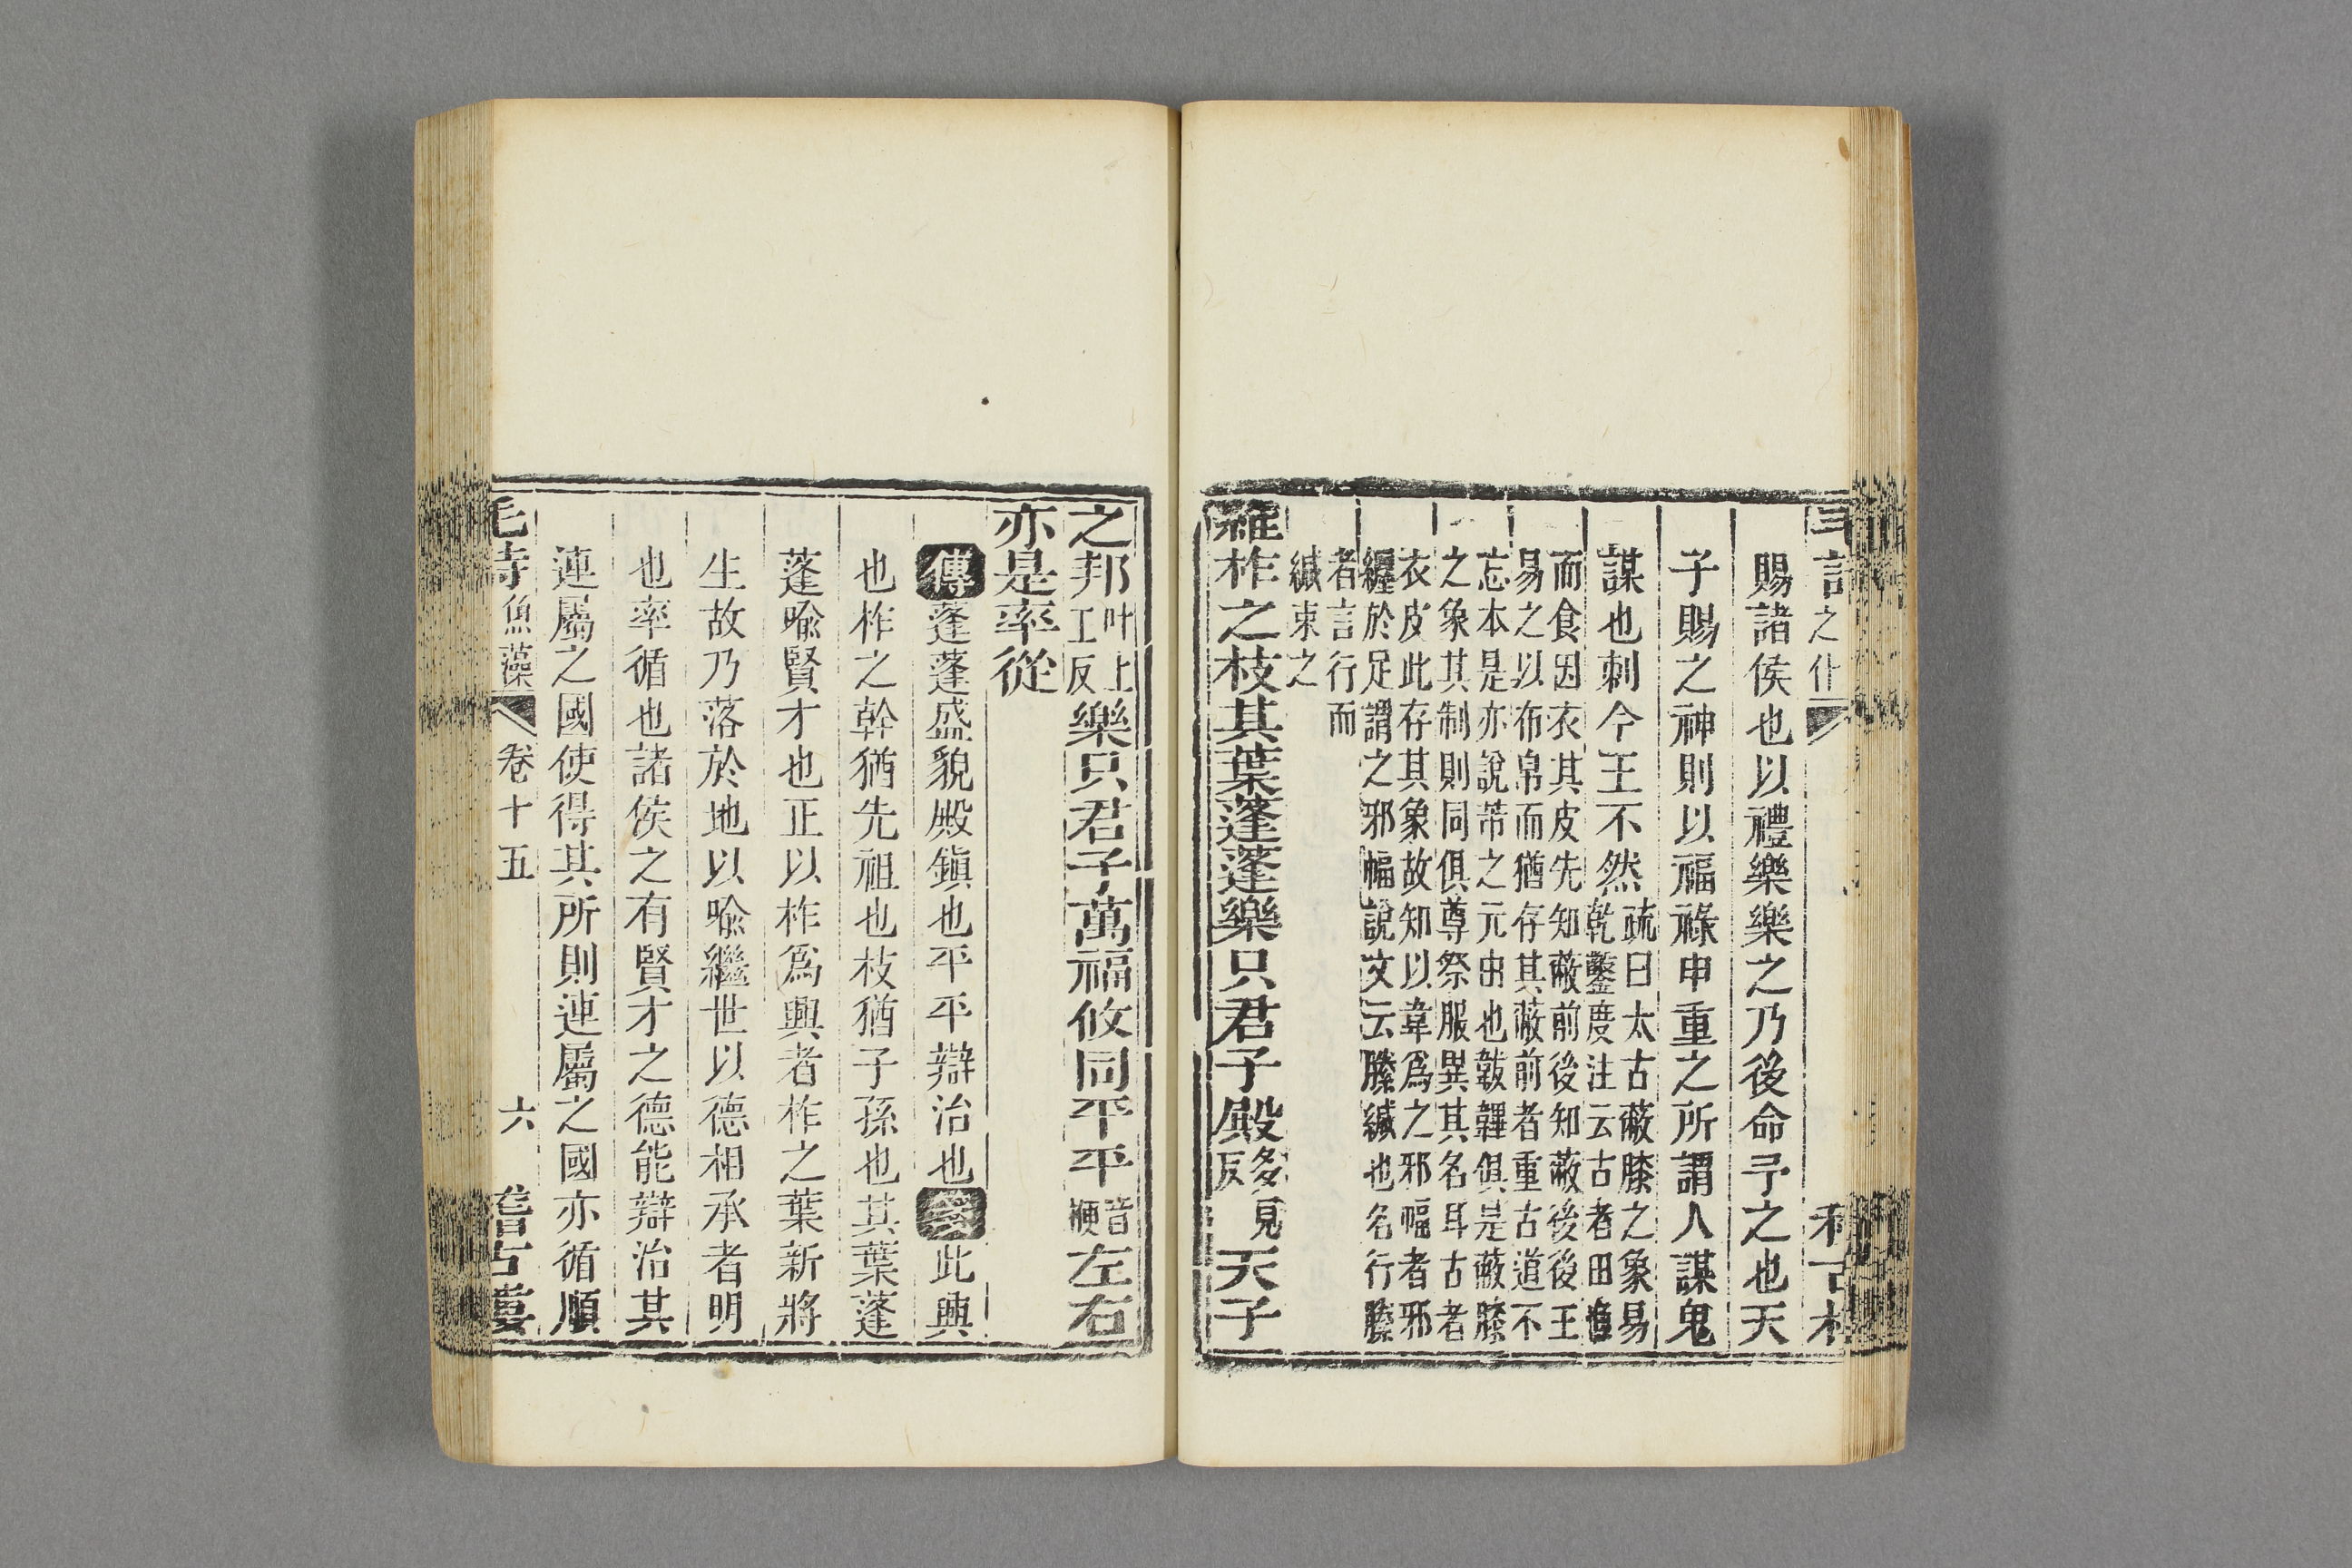 賜諸侯也以禮樂樂之乃後命予之也天
子賜之神則以福祿申重之所謂人謀鬼
謀也刺今王不然疏曰太古蔽膝之象易
乾鑿度注云古者田漁
而食因衣其皮先知蔽前後知蔽後後王
易之以布帛而猶存其蔽前者重古道不
忘本是亦說芾之元由也韍韠俱是蔽膝
之象其制則同俱尊祭服異其名耳古者
衣皮此存其象故知以韋爲之邪幅者邪
纏於足謂之邪幅說文云縢緘也名行縢
者言行而
緘束之
維柞之枝其葉蓬蓬樂只君子殿多見反天子
之邦叶上工反樂只君子萬福攸同平平音㛹左右
亦是率從
傳蓬蓬盛貌殿鎮也平平辯治也箋此興
也柞之幹猶先祖也枝猶子孫也其葉蓬
蓬喩賢才也正以柞爲興者柞之葉新將
生故乃落於地以喩繼世以德相承者明
也率循也諸侯之有賢才之德能辯治其
連屬之國使得其所則連屬之國亦循順
毛詩魚藻 卷十五 六 稽古樓